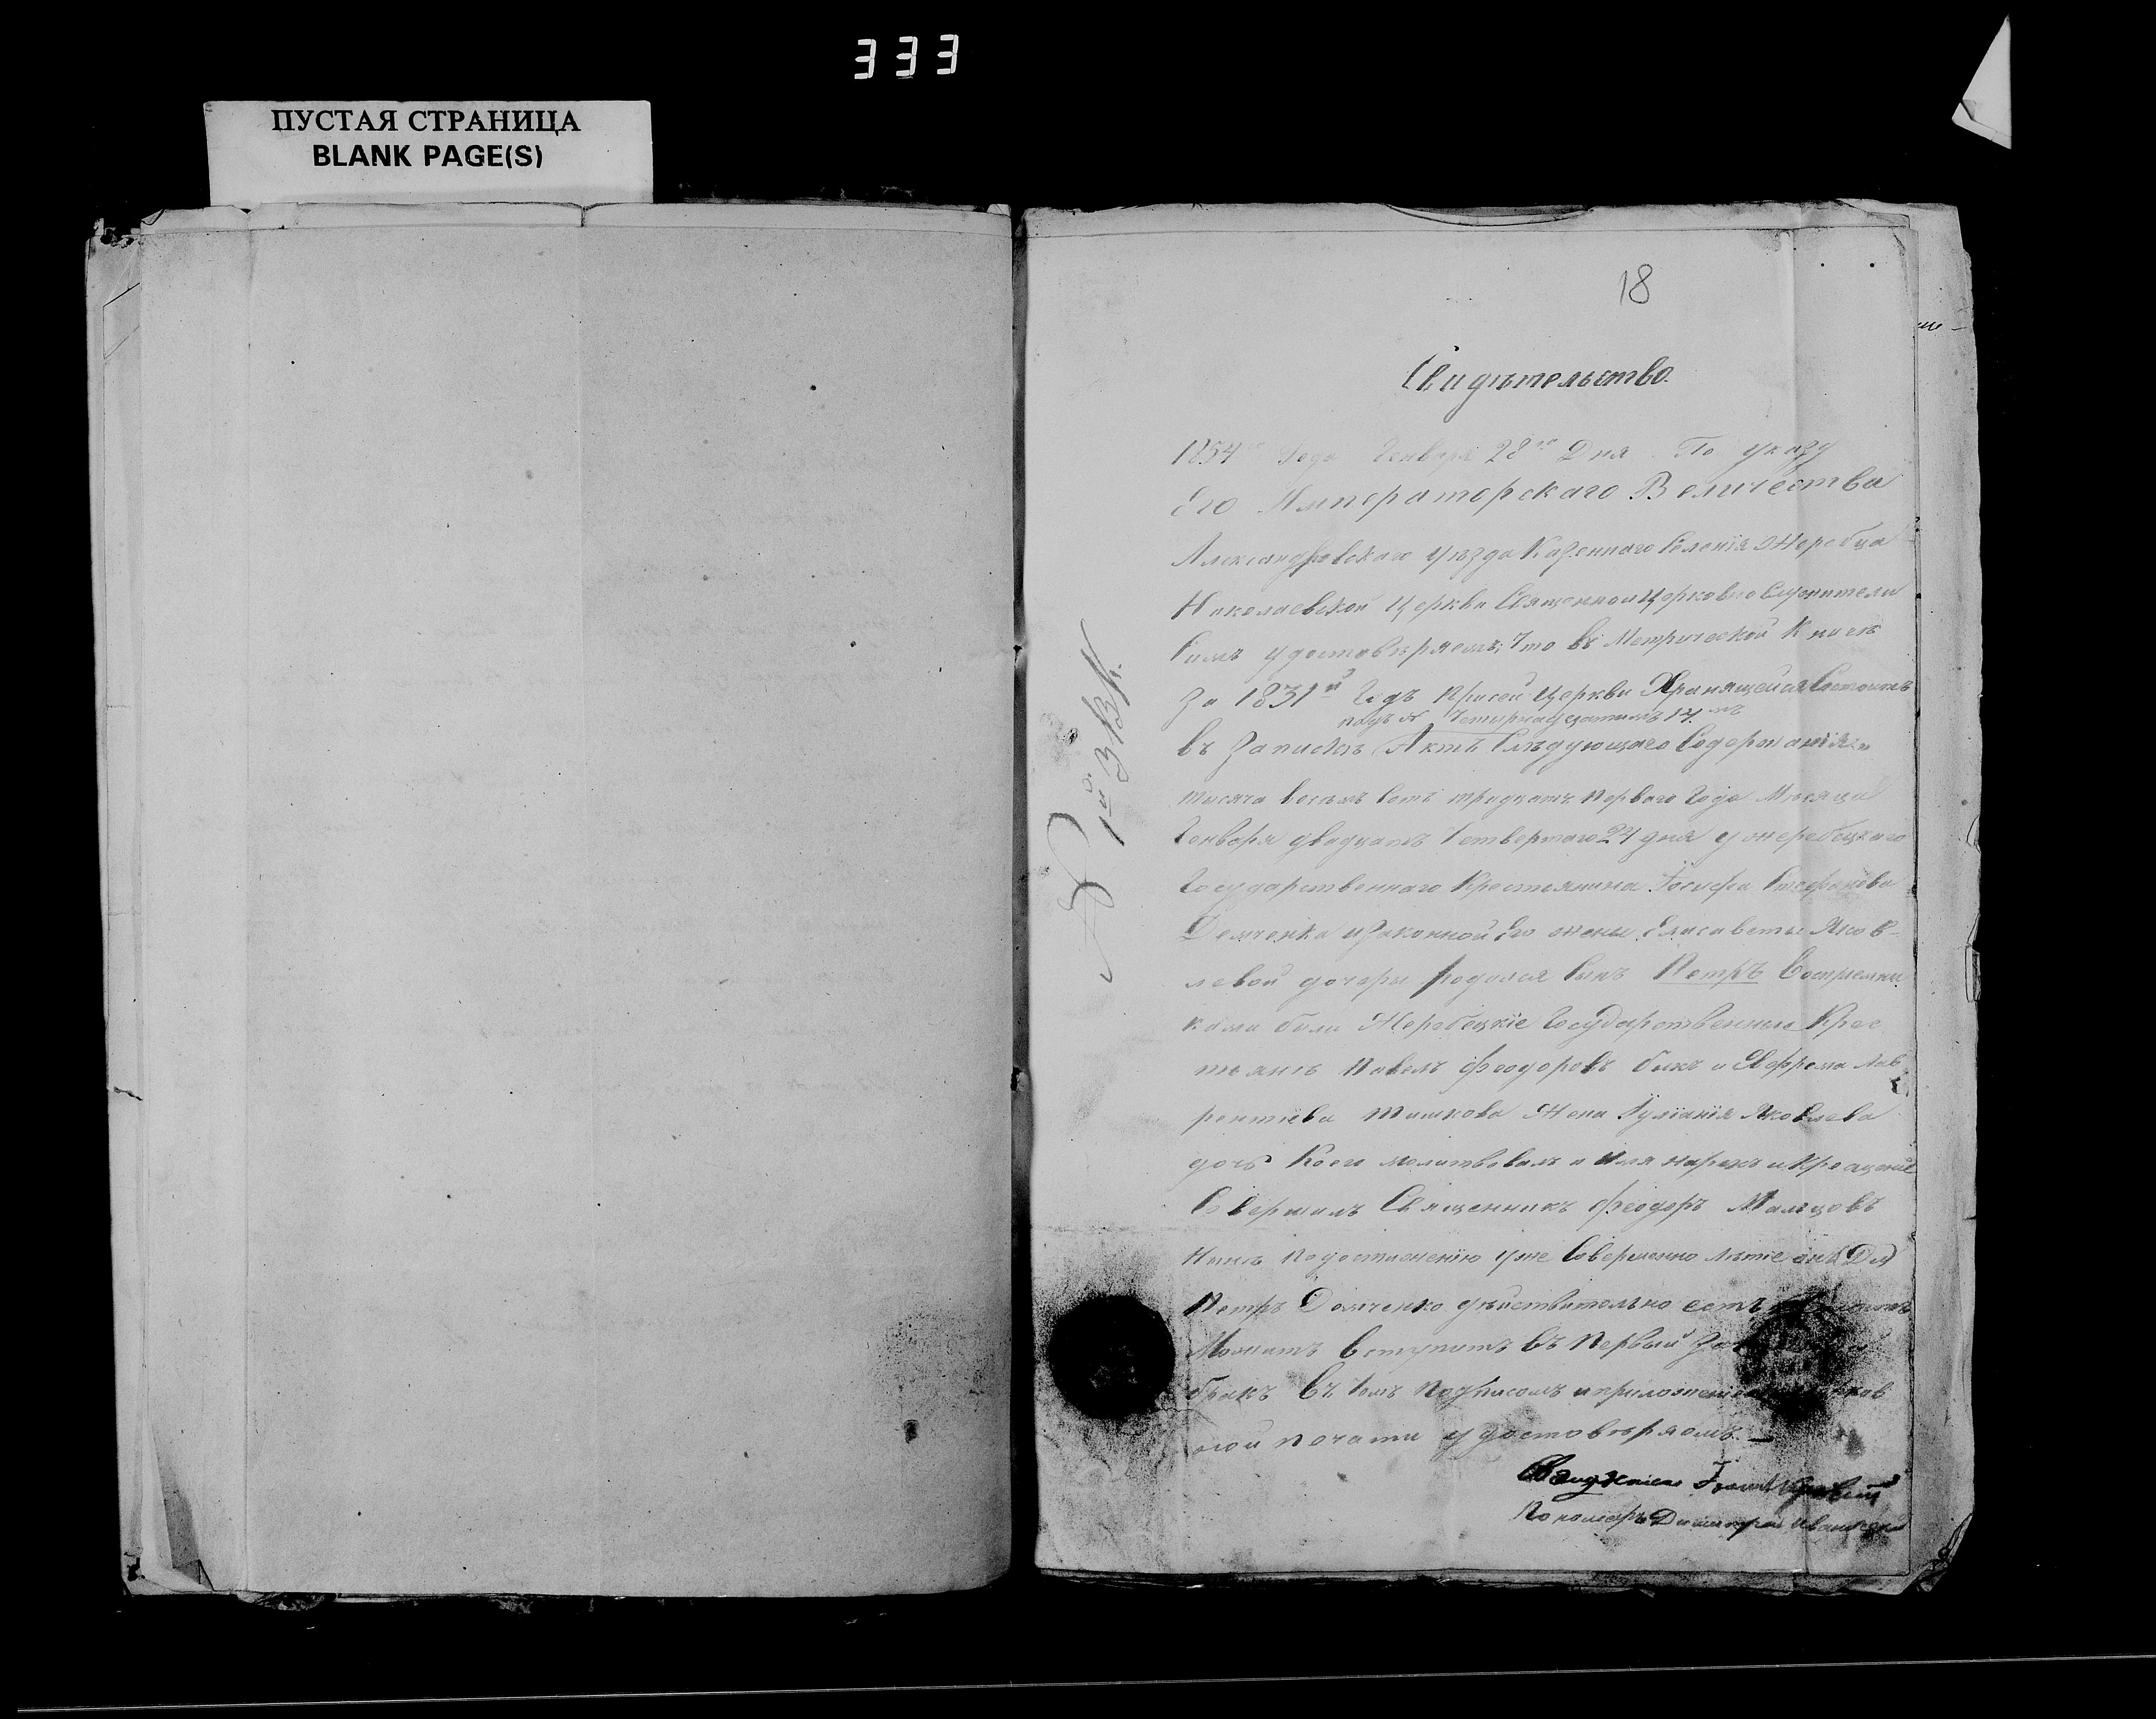 333
ПУСТАЯ СТРАНИЦА
BLANK PAGE(S)
18
Свидѣтельство.
1854 года Генваря 28го Дня По указу
Его Императорскаго Величества
Александровскаго уѣзда Казеннаго Селенія Жеребца
Николаевской Церкви Священно и Церковно Служители
Симъ удостовѣряемъ; Что въ Метрической Книгѣ
За 1831й Годъ При сей Церкви Хранящейся Состоитъ
подъ № Четырнадцатымъ 14мъ
въ Запискѣ Актъ Слѣдующаго Содержанія:
тысяча восемъ сотъ тридцать перваго Года Мѣсяца
Генваря двадцать Четвертаго 24 дня у жеребецкаго
Государственнаго Крестьянина Іосифа Стефанова
Демченка и Законной Его жены Елисаветы Яков-
левой дочери родился Сынъ Петръ Воспріемни
ками были Жеребецкіе Государственные Крес
тьяне Павелъ Феодоровъ Быкъ и Ефрема Лав
рентіева Тишкова Жена Іуліанія Яковлева
дочь Коего молитвовалъ и Имя нарекъ и Крещеніе
Совершилъ Священникъ Феодоръ Мальцовъ
Нынѣ по достиженію уже Совершенно лѣтіе онъ
Петръ Демченко дѣйствительно есть
Можитъ вступить въ Первый
бракъ Въ Чемъ Подписомъ и приложеніемъ
ной печати удостовѣряемъ. —
Священникъ
Пономарь Димитрій
№ 1й 3/ВК.